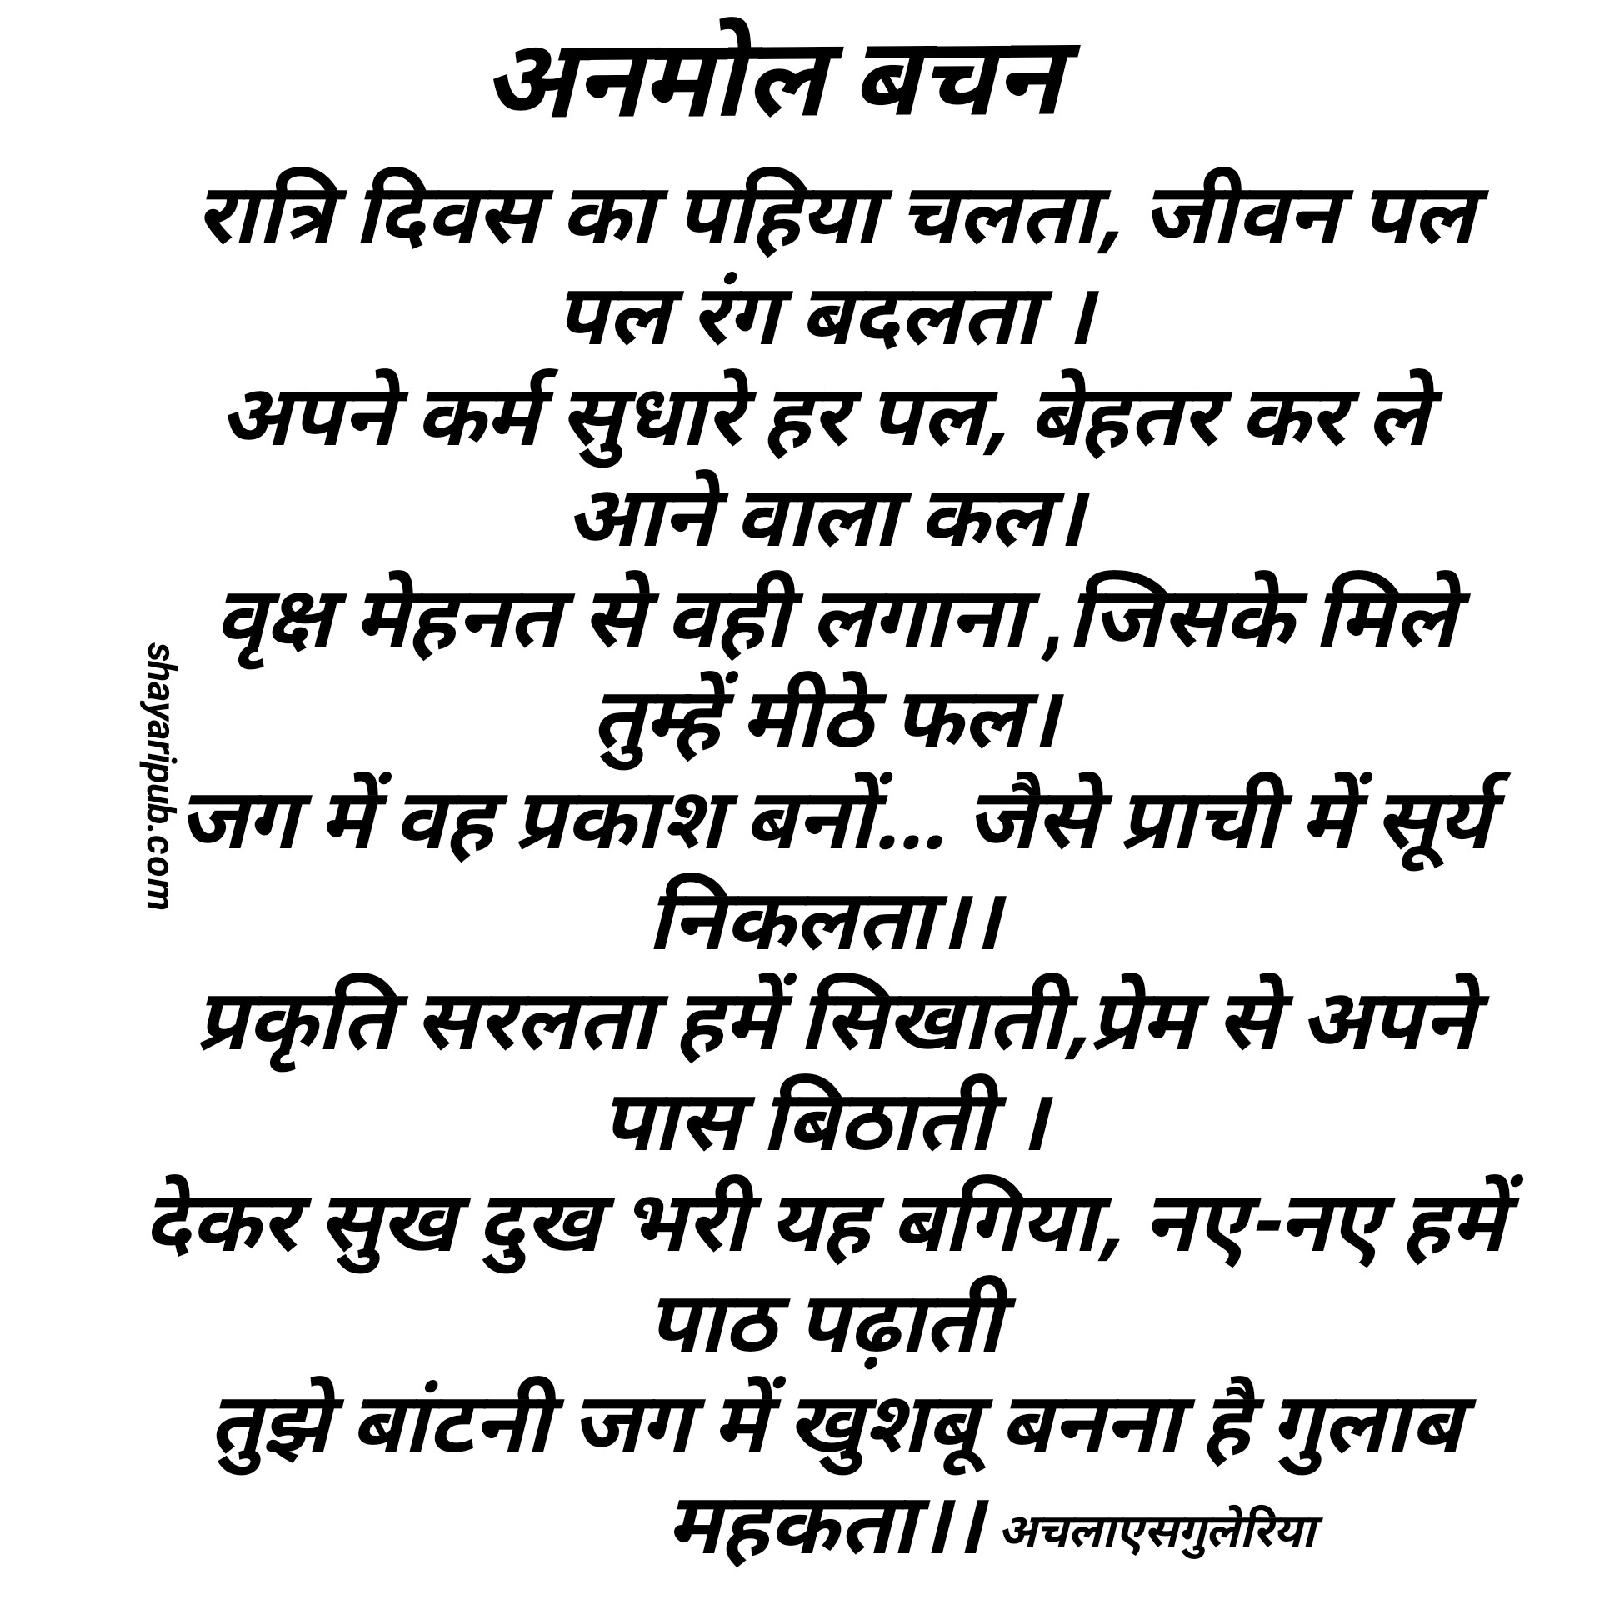 अनमोल बचन
रात्रि दिवस का पहिया चलता, जीवन पल
पल रंग बदलता ।
अपने कर्म सुधारे हर पल, बेहतर कर ले
आने वाला कल।
वृक्ष मेहनत से वही लगाना ,जिसके मिले
तुम्हें मीठे फल।
जग में वह प्रकाश बनों... जैसे प्राची में सूर्य
निकलता।।
प्रकृति सरलता हमें सिखाती,प्रेम से अपने
पास बिठाती ।
देकर सुख दुख भरी यह बगिया, नए-नए हमें
पाठ पढ़ाती
तुझे बांटनी जग में खुशबू बनना है गुलाब
महकता।। अचलाएसगुलेरिया
shayaripub.com